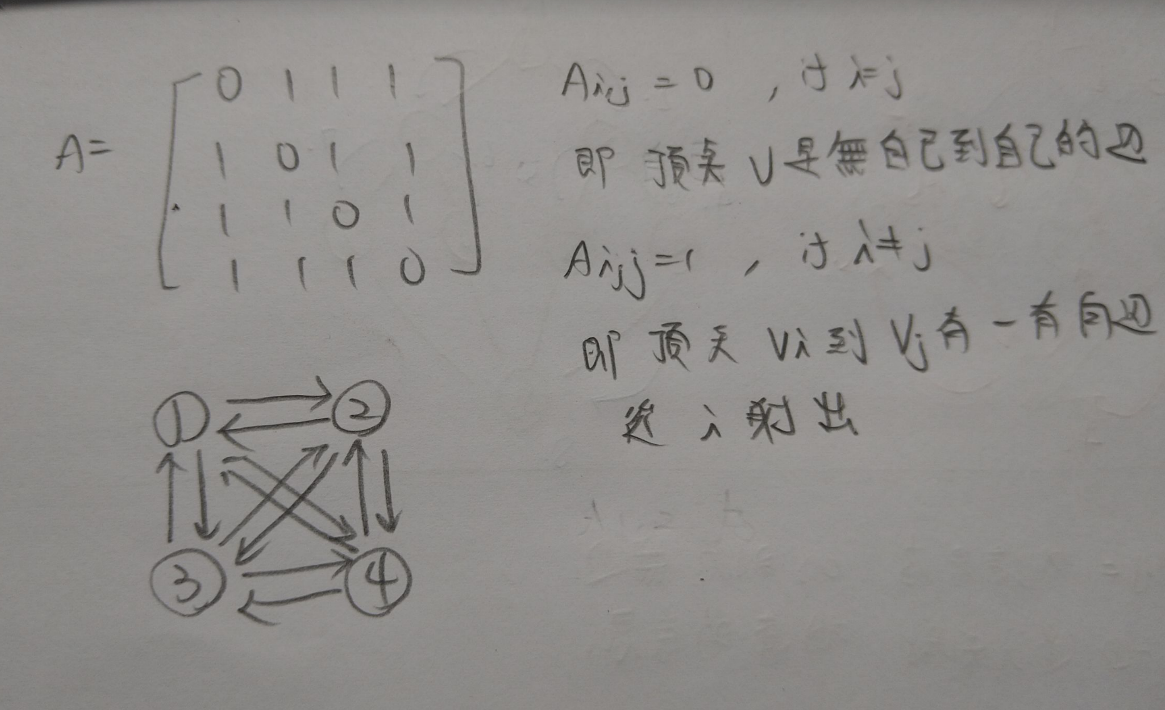 A=
0 1 1 1
1 0 1 1
1 1 0 1
1 1 1 0
Ai,j = 0 , if i=j
即 顶点 V 是無自己到自己的边
Ai,j=1 , if i≠j
即 顶点 Vi 到 Vj 有一有向边
从 i 射出
① ②
③ ④